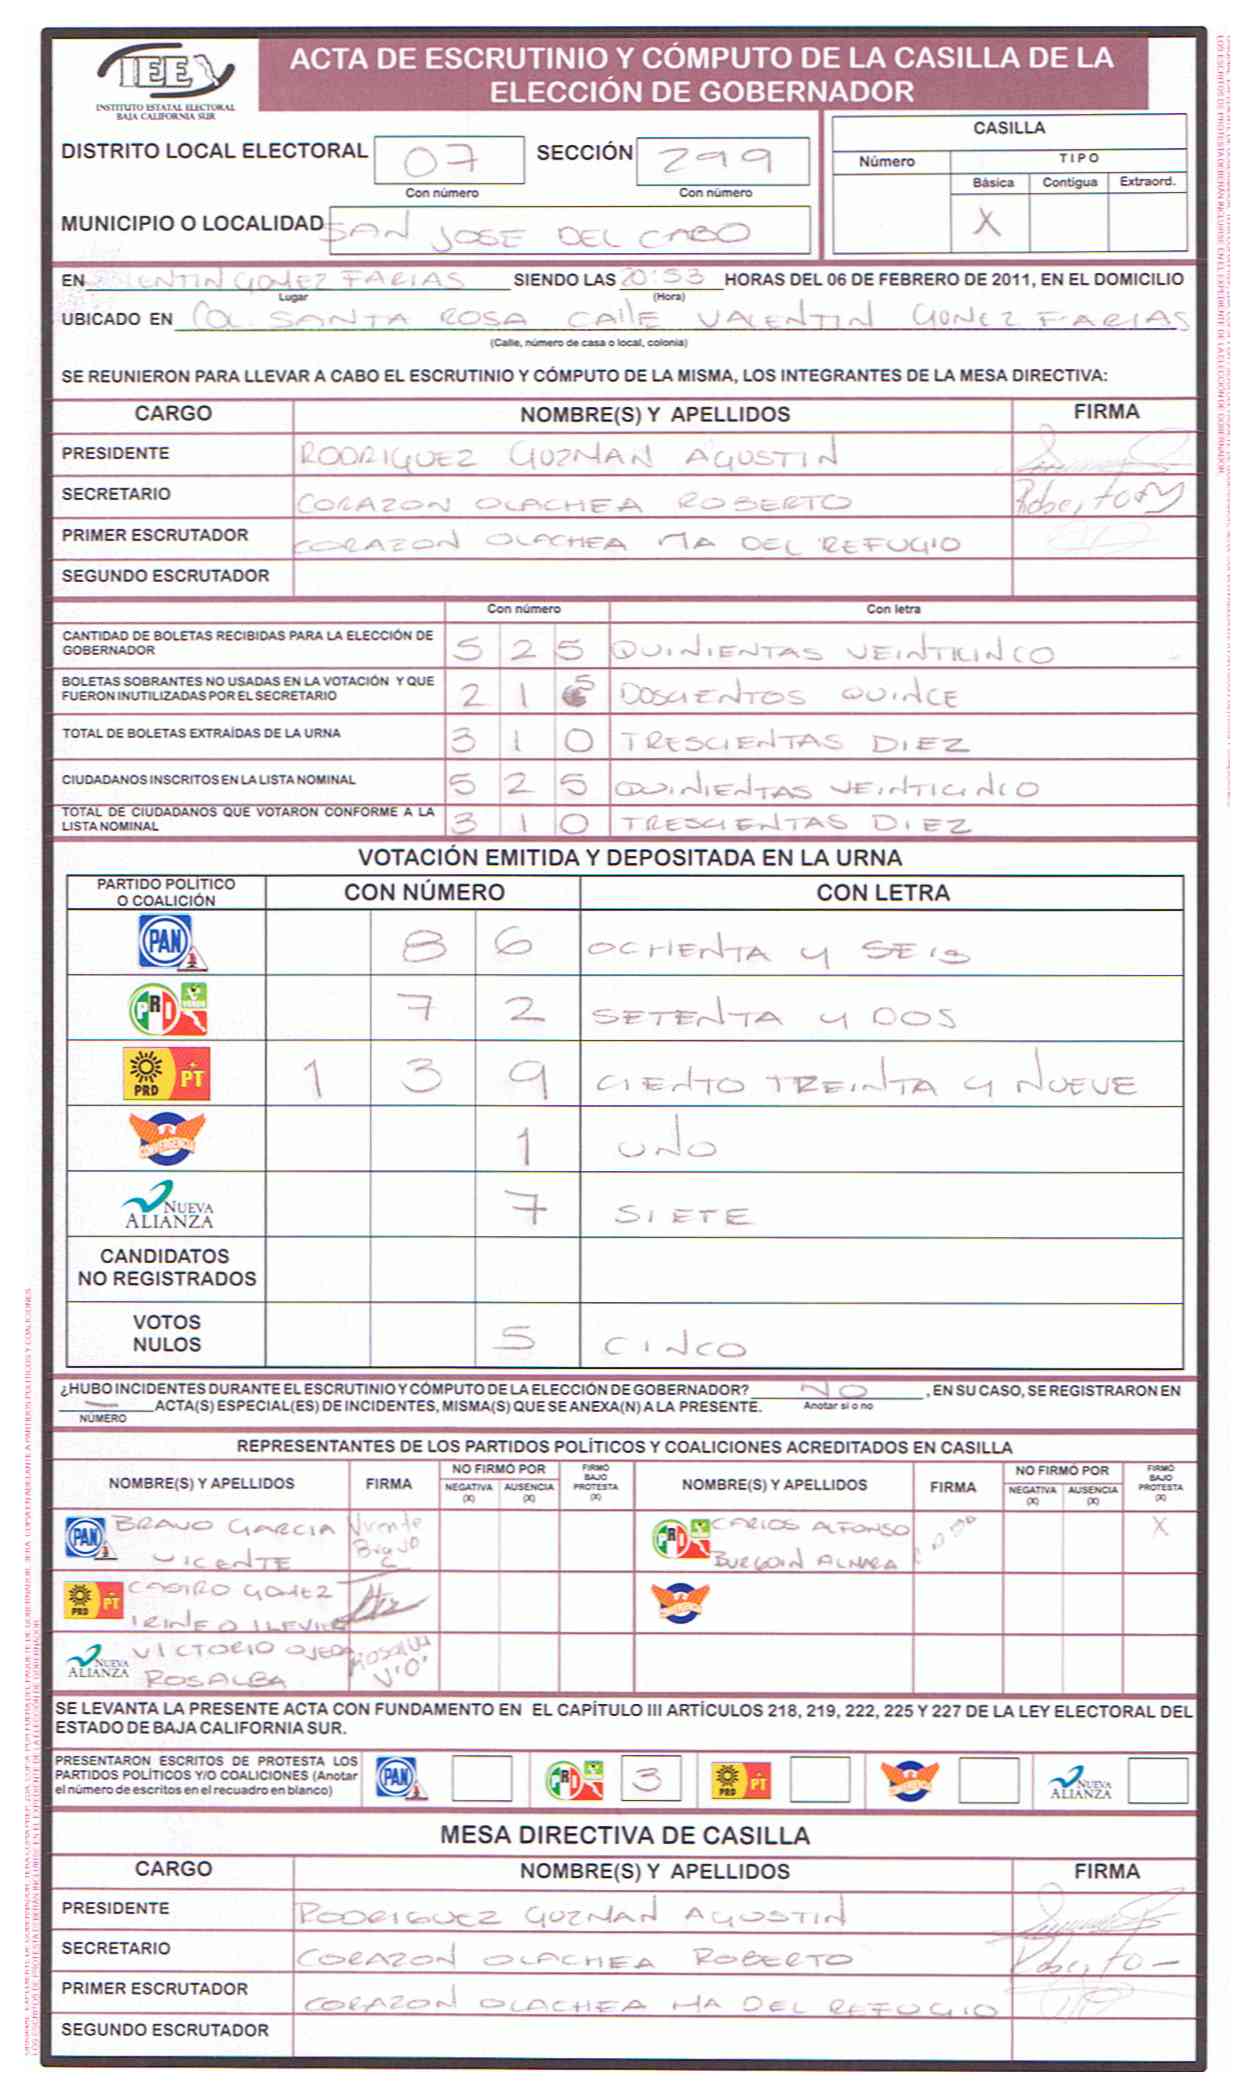 IEE
INSTITUTO ESTATAL ELECTORAL
BAJA CALIFORNIA SUR
ACTA DE ESCRUTINIO Y CÓMPUTO DE LA CASILLA DE LA
ELECCIÓN DE GOBERNADOR
DISTRITO LOCAL ELECTORAL 07 SECCIÓN 299
Con número Con número
MUNICIPIO O LOCALIDAD SAN JOSE DEL CABO
CASILLA
Número TIPO
Básica Contigua Extraord.
X
EN VALENTIN GOMEZ FARIAS SIENDO LAS 20:53 HORAS DEL 06 DE FEBRERO DE 2011, EN EL DOMICILIO
Lugar (Hora)
UBICADO EN COL. SANTA ROSA CAllE VALENTIN GOMEZ FARIAS
(Calle, número de casa o local, colonia)
SE REUNIERON PARA LLEVAR A CABO EL ESCRUTINIO Y CÓMPUTO DE LA MISMA, LOS INTEGRANTES DE LA MESA DIRECTIVA:
CARGO NOMBRE(S) Y APELLIDOS FIRMA
PRESIDENTE RODRIGUEZ GUZMAN AGUSTIN
SECRETARIO CORAZON OLACHEA ROBERTO Roberto
PRIMER ESCRUTADOR CORAZON OLACHEA MA DEL REFUGIO
SEGUNDO ESCRUTADOR
Con número Con letra
CANTIDAD DE BOLETAS RECIBIDAS PARA LA ELECCIÓN DE
GOBERNADOR 5 2 5 QUINIENTAS VEINTICINCO
BOLETAS SOBRANTES NO USADAS EN LA VOTACIÓN Y QUE
FUERON INUTILIZADAS POR EL SECRETARIO 2 1 5 DOSCIENTOS QUINCE
TOTAL DE BOLETAS EXTRAÍDAS DE LA URNA 3 1 0 TRESCIENTAS DIEZ
CIUDADANOS INSCRITOS EN LA LISTA NOMINAL 5 2 5 QUINIENTAS VEINTICINCO
TOTAL DE CIUDADANOS QUE VOTARON CONFORME A LA
LISTA NOMINAL 3 1 0 TRESCIENTAS DIEZ
VOTACIÓN EMITIDA Y DEPOSITADA EN LA URNA
PARTIDO POLÍTICO
O COALICIÓN CON NÚMERO CON LETRA
PAN 8 6 OCHENTA Y SEIS
PRI VERDE 7 2 SETENTA Y DOS
PRD PT 1 3 9 CIENTO TREINTA Y NUEVE
CONVERGENCIA 1 UNO
NUEVA ALIANZA 7 SIETE
CANDIDATOS
NO REGISTRADOS
VOTOS
NULOS 5 CINCO
¿HUBO INCIDENTES DURANTE EL ESCRUTINIO Y CÓMPUTO DE LA ELECCIÓN DE GOBERNADOR? NO , EN SU CASO, SE REGISTRARON EN
ACTA(S) ESPECIAL(ES) DE INCIDENTES, MISMA(S) QUE SE ANEXA(N) A LA PRESENTE. Anotar si o no
NÚMERO
REPRESENTANTES DE LOS PARTIDOS POLÍTICOS Y COALICIONES ACREDITADOS EN CASILLA
NOMBRE(S) Y APELLIDOS FIRMA NO FIRMÓ POR NEGATIVA (X) AUSENCIA (X) FIRMÓ BAJO PROTESTA (X) NOMBRE(S) Y APELLIDOS FIRMA NO FIRMÓ POR NEGATIVA (X) AUSENCIA (X) FIRMÓ BAJO PROTESTA (X)
PAN BRAVO GARCIA Vicente PRI CARLOS ALFONSO X
VICENTE Bravo G BURGOIN
PRD PT CASTRO GOMEZ CONVERGENCIA
IRINEO
NUEVA ALIANZA VICTORIO OJEDA ROSALVA
ROSALBA V'O'
SE LEVANTA LA PRESENTE ACTA CON FUNDAMENTO EN EL CAPÍTULO III ARTÍCULOS 218, 219, 222, 225 Y 227 DE LA LEY ELECTORAL DEL
ESTADO DE BAJA CALIFORNIA SUR.
PRESENTARON ESCRITOS DE PROTESTA LOS
PARTIDOS POLÍTICOS Y/O COALICIONES (Anotar
el número de escritos en el recuadro en blanco) PAN PRI 3 PRD PT CONVERGENCIA NUEVA ALIANZA
MESA DIRECTIVA DE CASILLA
CARGO NOMBRE(S) Y APELLIDOS FIRMA
PRESIDENTE RODRIGUEZ GUZMAN AGUSTIN
SECRETARIO CORAZON OLACHEA ROBERTO Roberto
PRIMER ESCRUTADOR CORAZON OLACHEA MA DEL REFUGIO
SEGUNDO ESCRUTADOR